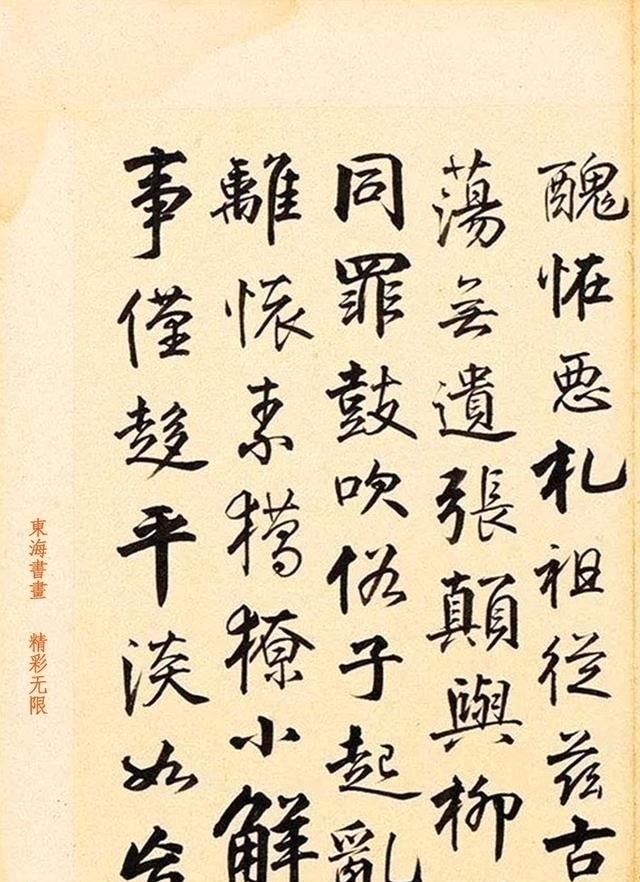 醜恠悪札祖從茲古
蕩無遺張顛與柳
同罪鼓吹俗子起亂
離懷素獦獠小解
事僅趍平淡如
東海書畫 精彩无限